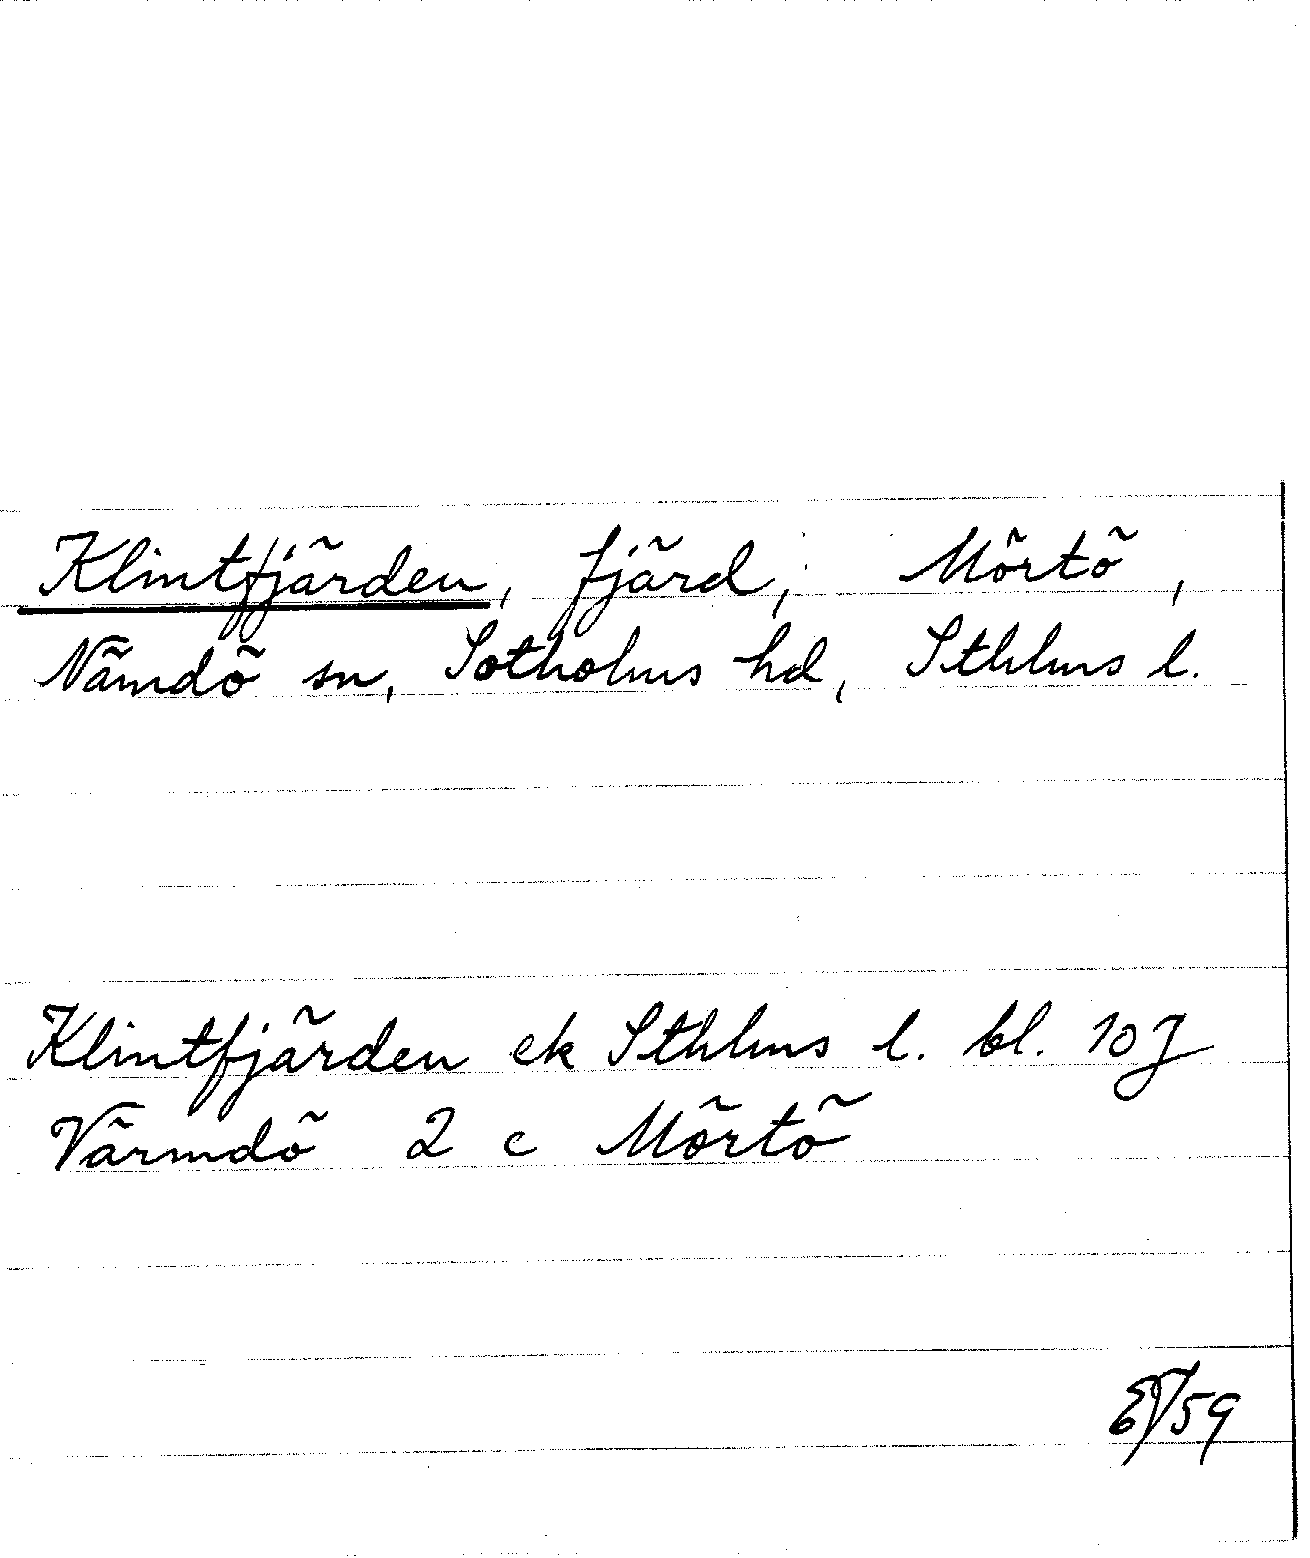 Klintfjärden, fjärd, Mörtö,
Nämdö sn, Sotholms hd, Sthlms l.
Klintfjärden ek Sthlms l. bl. 10 J
Värmdö 2 c Mörtö
59